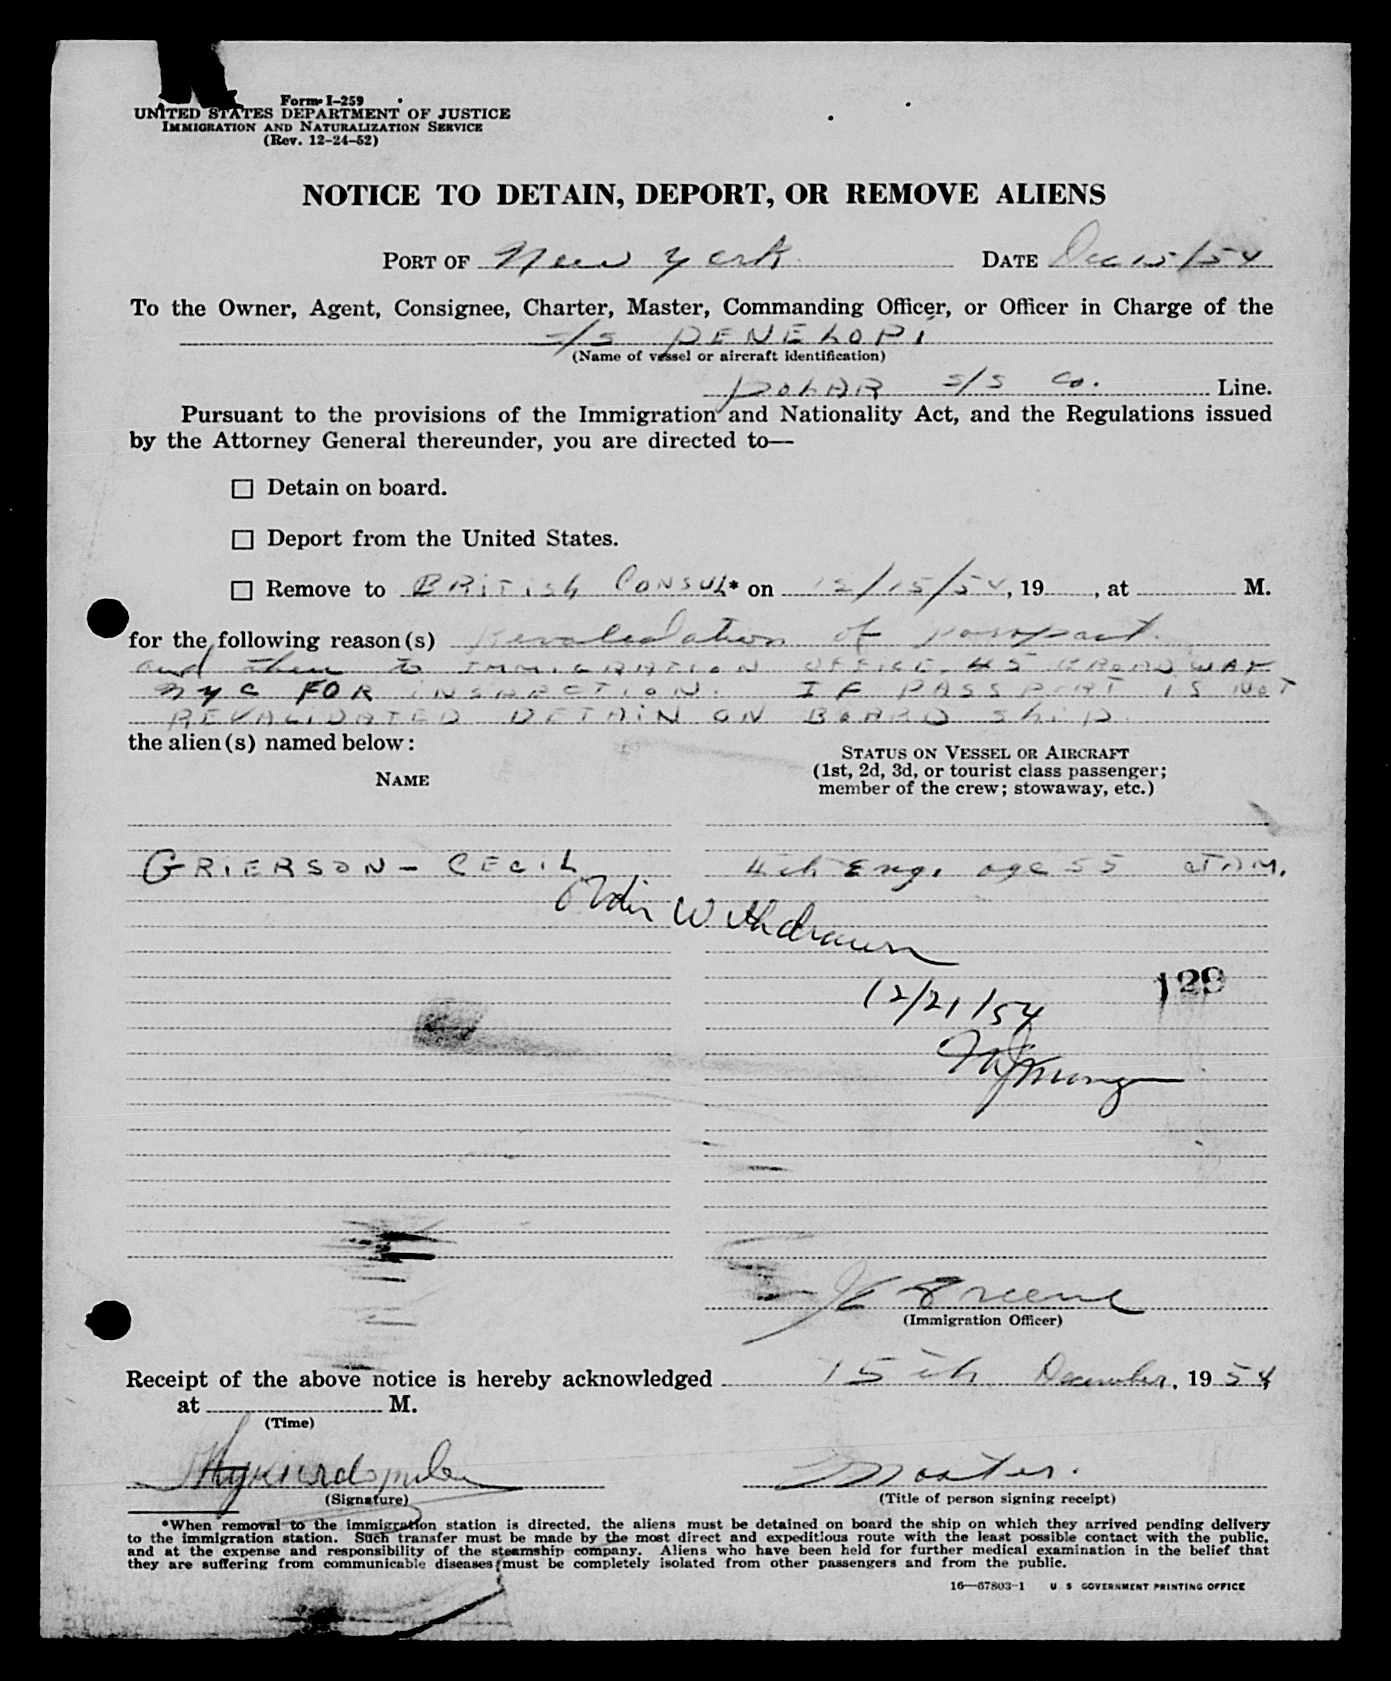 Form I-259
UNITED STATES DEPARTMENT OF JUSTICE
IMMIGRATION AND NATURALIZATION SERVICE
(Rev. 12-24-52)
NOTICE TO DETAIN, DEPORT, OR REMOVE ALIENS
PORT OF New York DATE Dec 15/54
To the Owner, Agent, Consignee, Charter, Master, Commanding Officer, or Officer in Charge of the
S/S PENELOPI
(Name of vessel or aircraft identification)
POLAR S/S Co. Line.
Pursuant to the provisions of the Immigration and Nationality Act, and the Regulations issued
by the Attorney General thereunder, you are directed to—
☐ Detain on board.
☐ Deport from the United States.
☐ Remove to BRITISH CONSUL* on 12/15/54, 19 , at M.
for the following reason(s) Revalidation of passport.
and then to IMMIGRATION OFFICE 45 BROADWAY
NYC FOR INSPECTION. IF PASSPORT IS NOT
REVALIDATED DETAIN ON BOARD SHIP.
the alien(s) named below:
NAME
STATUS ON VESSEL OR AIRCRAFT
(1st, 2d, 3d, or tourist class passenger;
member of the crew; stowaway, etc.)
GRIERSON - CECIL 4th Eng. age 55
Order Withdrawn
129
12/21/54
J E Greene
(Immigration Officer)
Receipt of the above notice is hereby acknowledged 15th December, 1954
at M.
(Time)
Master.
(Signature) (Title of person signing receipt)
*When removal to the immigration station is directed, the aliens must be detained on board the ship on which they arrived pending delivery
to the immigration station. Such transfer must be made by the most direct and expeditious route with the least possible contact with the public,
and at the expense and responsibility of the steamship company. Aliens who have been held for further medical examination in the belief that
they are suffering from communicable diseases must be completely isolated from other passengers and from the public.
16—67803-1 U S GOVERNMENT PRINTING OFFICE